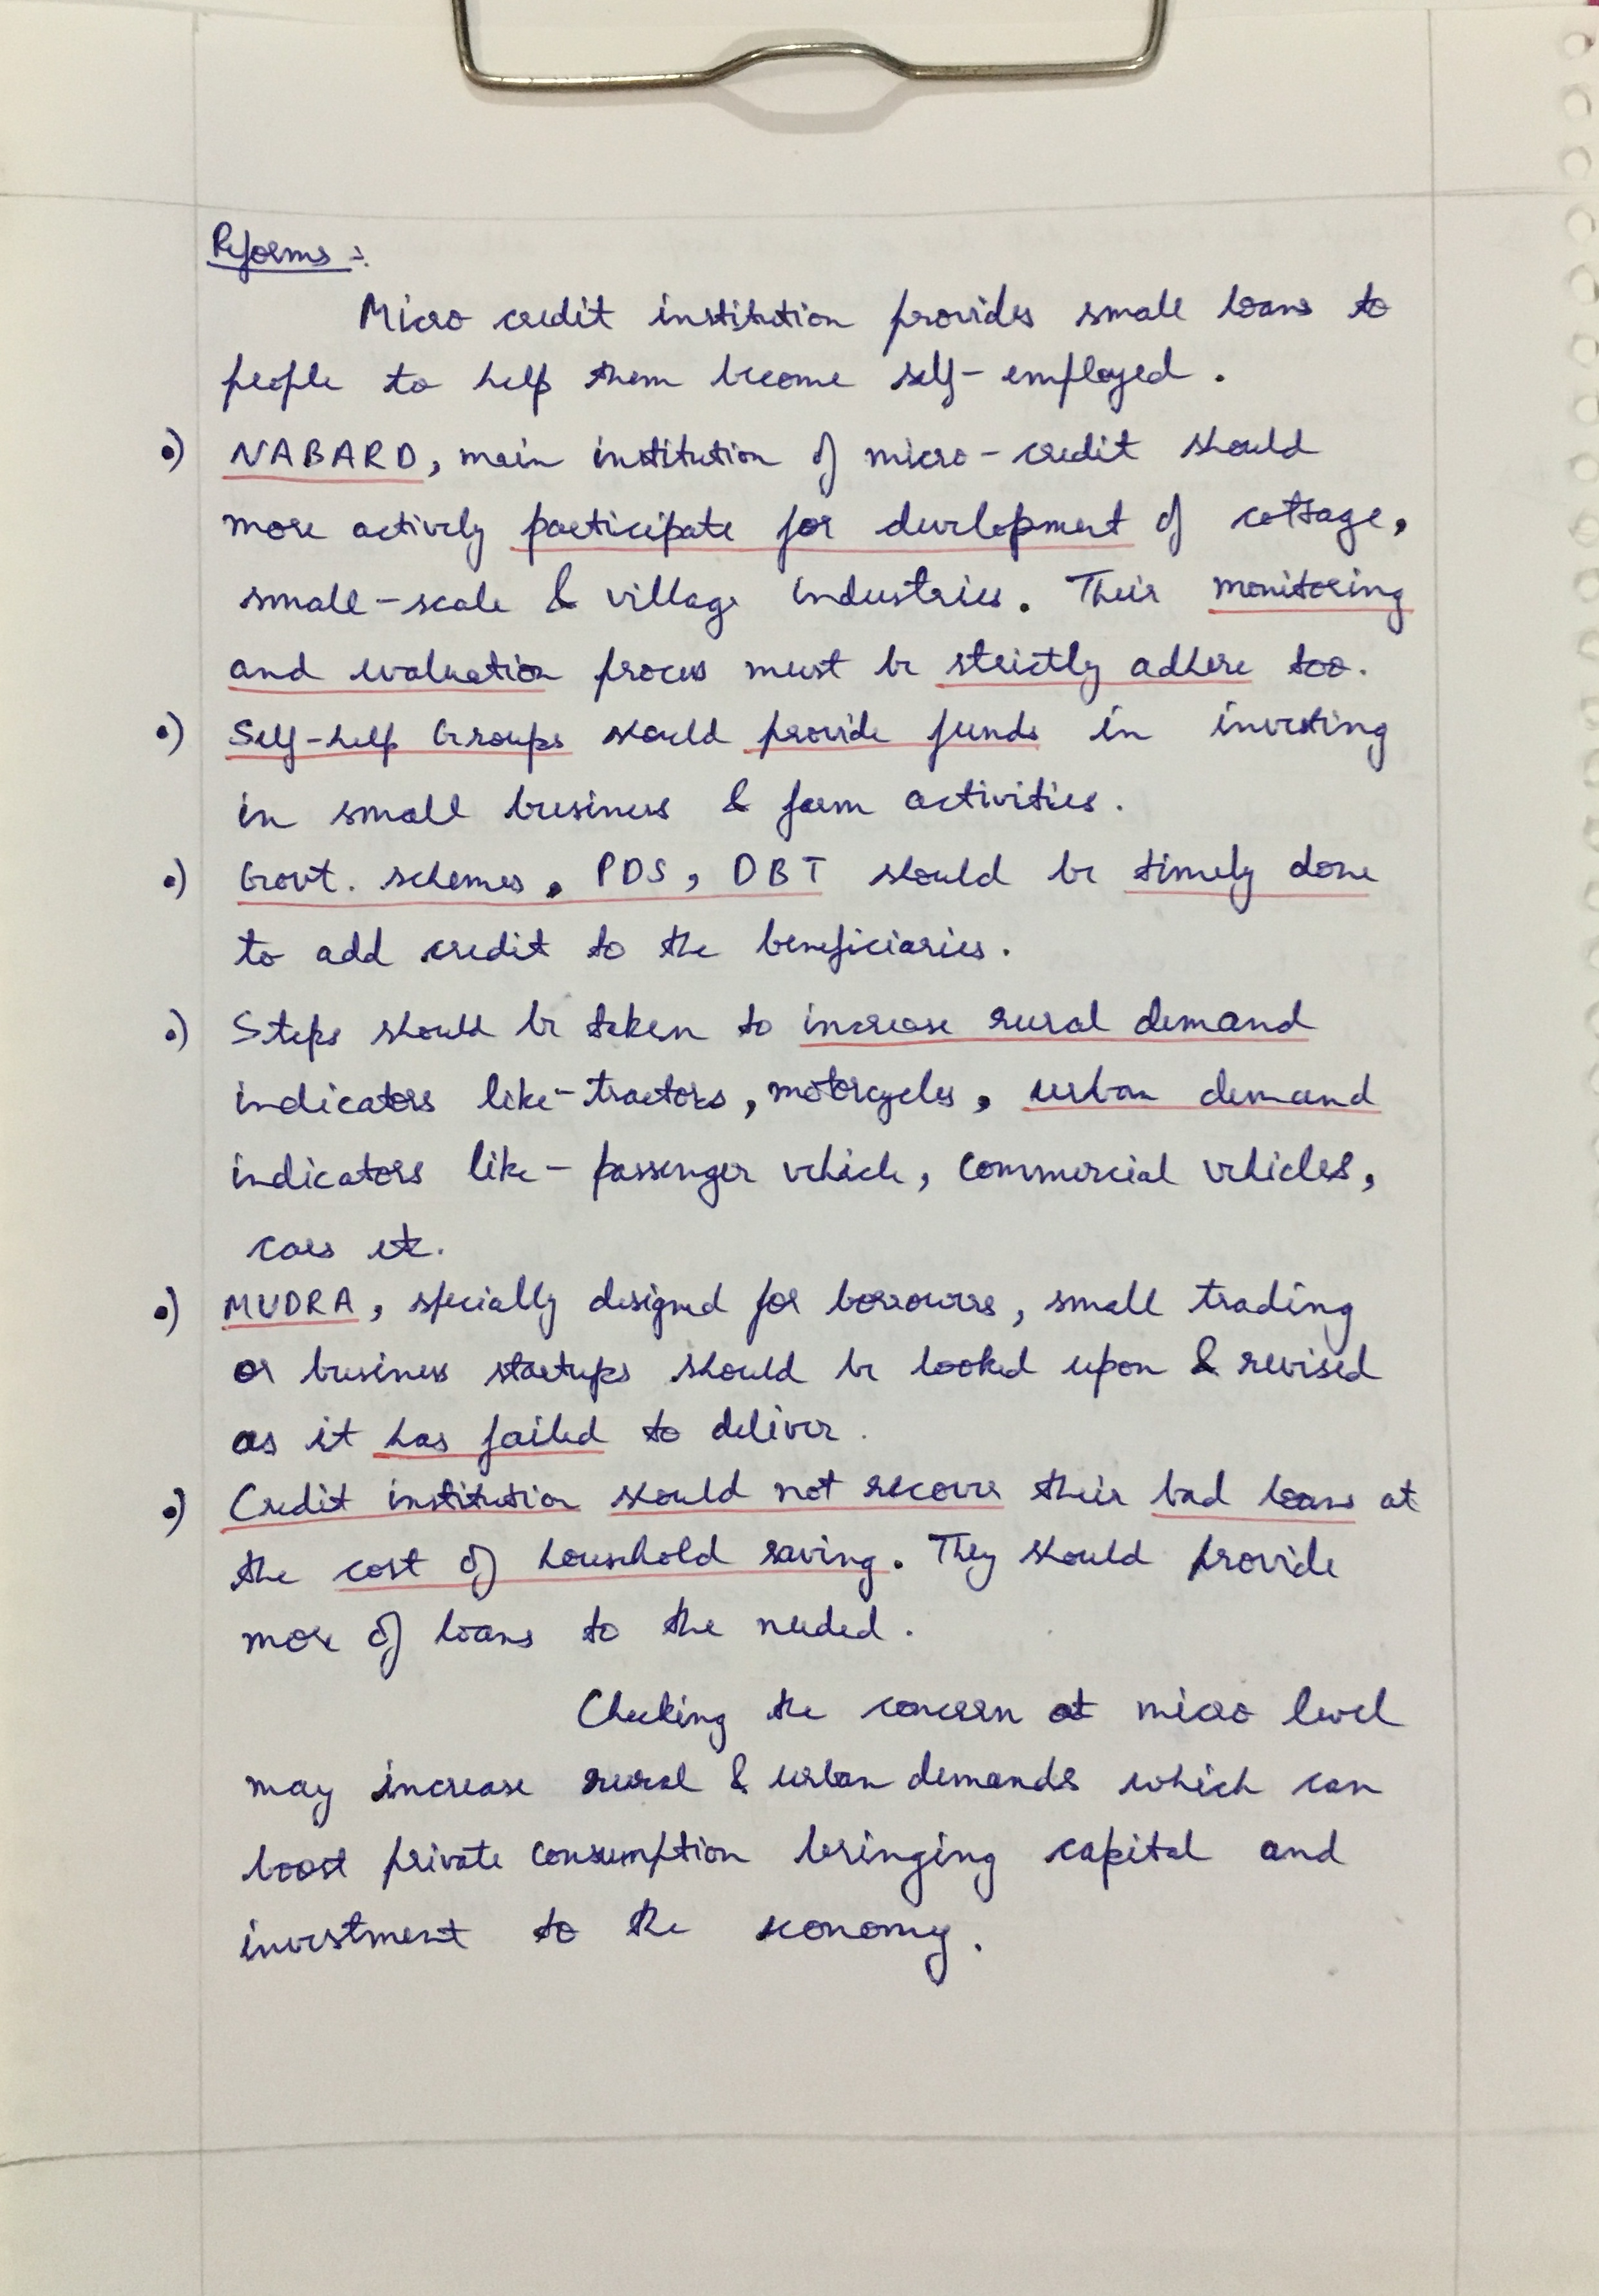 Reforms :-
Micro credit institution provides small loans to
people to help them become self-employed.
•) NABARD, main institution of micro-credit should
more actively participate for development of cottage,
small-scale & village industries. Their monitoring
and evaluation process must be strictly adhere too.
•) Self-help Groups should provide funds in investing
in small business & farm activities.
•) Govt. schemes, PDS, DBT should be timely done
to add credit to the beneficiaries.
•) Steps should be taken to increase rural demand
indicators like-tractors, motorcycles, urban demand
indicators like - passenger vehicle, commercial vehicles,
cars etc.
•) MUDRA, specially designed for borrowers, small trading
or business startups should be looked upon & revised
as it has failed to deliver.
•) Credit institution should not recover their bad loans at
the cost of household saving. They should provide
more of loans to the needed.
Checking the concern at micro level
may increase rural & urban demands which can
boost private consumption bringing capital and
investment to the economy.